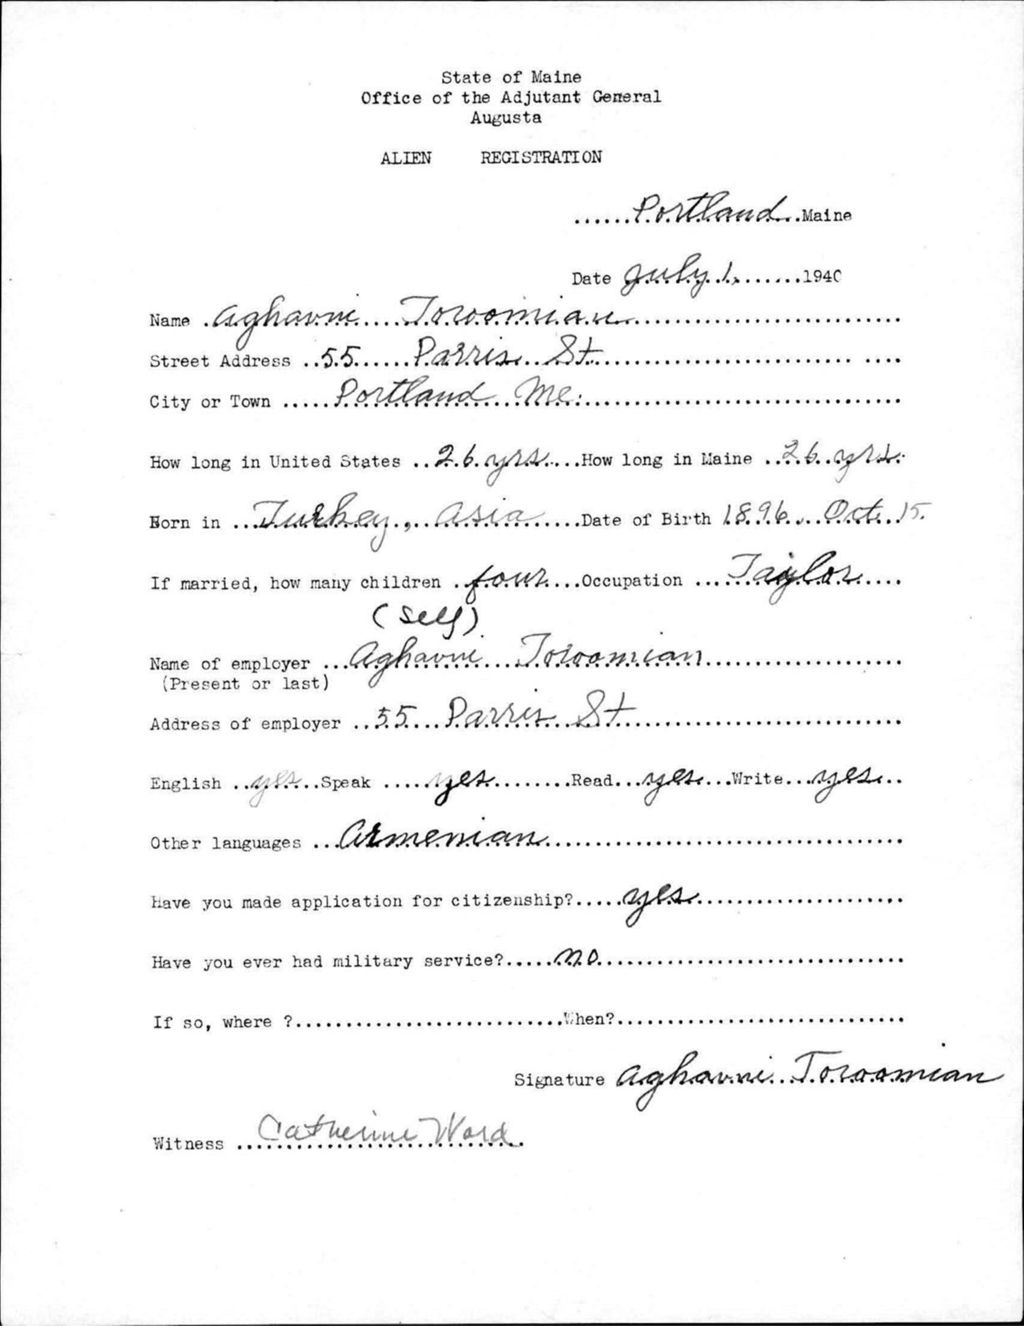 State of Maine
Office of the Adjutant General
Augusta
ALIEN REGISTRATION
......Portland..Maine
Date July 1,.......1940
Name .Aghavni.....Toroomian...........................
Street Address ..55......Parris..St............................... ....
City or Town .....Portland...Me.................................
How long in United States ..26.yrs.....How long in Maine ..26..yrs.
Born in ...Turkey,..Asia......Date of Birth 1896...Oct. 15.
If married, how many children .four....Occupation ...Taylor....
(Self)
Name of employer ...Aghavni....Toroomian....................
(Present or last)
Address of employer ..55...Parris..St...........................
English ..yes...Speak .....yes........Read...yes...Write...yes..
Other languages ...Armenian....................................
Have you made application for citizenship?.....yes.....................
Have you ever had military service?.....no...............................
If so, where ?...........................When?.............................
Signature Aghavni..Toroomian
Witness ..Catherine Ward.